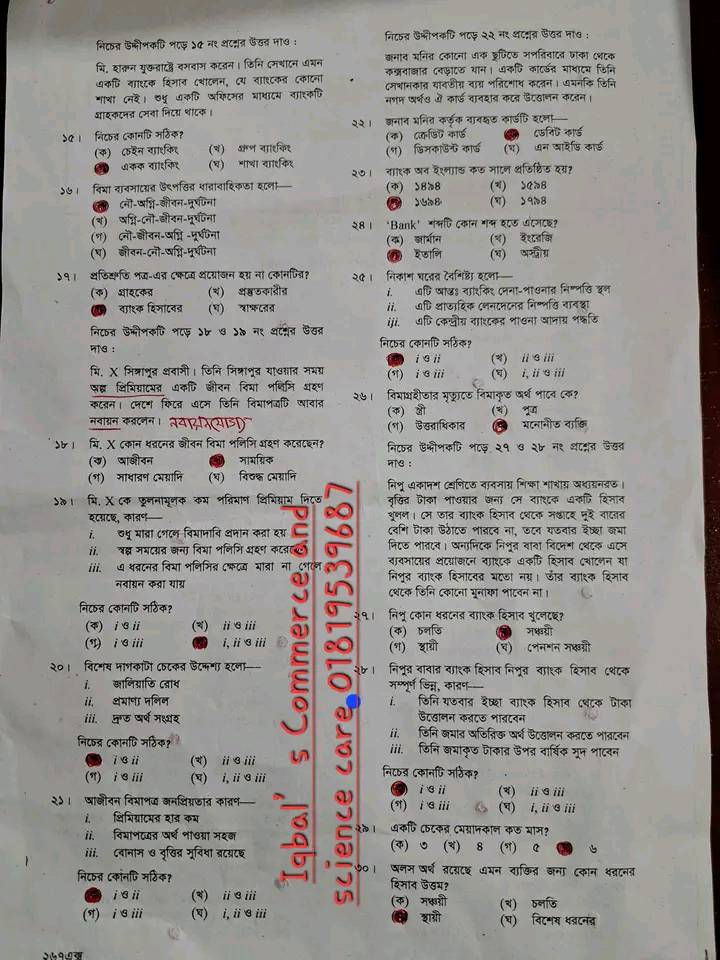 নিচের উদ্দীপকটি পড়ে ১৫ নং প্রশ্নের উত্তর দাও :
মি. হারুন যুক্তরাষ্ট্রে বসবাস করেন। তিনি সেখানে এমন
একটি ব্যাংকে হিসাব খোলেন, যে ব্যাংকের কোনো
শাখা নেই। শুধু একটি অফিসের মাধ্যমে ব্যাংকটি
গ্রাহকদের সেবা দিয়ে থাকে।
১৫। নিচের কোনটি সঠিক?
(ক) চেইন ব্যাংকিং (খ) গ্রুপ ব্যাংকিং
একক ব্যাংকিং (ঘ) শাখা ব্যাংকিং
১৬। বিমা ব্যবসায়ের উৎপত্তির ধারাবাহিকতা হলো—
নৌ-অগ্নি-জীবন-দুর্ঘটনা
(খ) অগ্নি-নৌ-জীবন-দুর্ঘটনা
(গ) নৌ-জীবন-অগ্নি -দুর্ঘটনা
(ঘ) জীবন-নৌ-অগ্নি-দুর্ঘটনা
১৭। প্রতিশ্রুতি পত্র-এর ক্ষেত্রে প্রয়োজন হয় না কোনটির?
(ক) গ্রাহকের (খ) প্রস্তুতকারীর
ব্যাংক হিসাবের (ঘ) স্বাক্ষরের
নিচের উদ্দীপকটি পড়ে ১৮ ও ১৯ নং প্রশ্নের উত্তর
দাও :
মি. X সিঙ্গাপুর প্রবাসী। তিনি সিঙ্গাপুর যাওয়ার সময়
অল্প প্রিমিয়ামের একটি জীবন বিমা পলিসি গ্রহণ
করেন। দেশে ফিরে এসে তিনি বিমাপত্রটি আবার
নবায়ন করলেন।
১৮। মি. X কোন ধরনের জীবন বিমা পলিসি গ্রহণ করেছেন?
(ক) আজীবন সাময়িক
(গ) সাধারণ মেয়াদি (ঘ) বিশুদ্ধ মেয়াদি
১৯। মি. X কে তুলনামূলক কম পরিমাণ প্রিমিয়াম দিতে
হয়েছে, কারণ—
i. শুধু মারা গেলে বিমাদাবি প্রদান করা হয়
ii. স্বল্প সময়ের জন্য বিমা পলিসি গ্রহণ করেছে
iii. এ ধরনের বিমা পলিসির ক্ষেত্রে মারা না গেলে
নবায়ন করা যায়
নিচের কোনটি সঠিক?
(ক) i ও ii (খ) ii ও iii
(গ) i ও iii i, ii ও iii
২০। বিশেষ দাগকাটা চেকের উদ্দেশ্য হলো—
i. জালিয়াতি রোধ
ii. প্রমাণ্য দলিল
iii. দ্রুত অর্থ সংগ্রহ
নিচের কোনটি সঠিক?
i ও ii (খ) ii ও iii
(গ) i ও iii (ঘ) i, ii ও iii
২১। আজীবন বিমাপত্র জনপ্রিয়তার কারণ—
i. প্রিমিয়ামের হার কম
ii. বিমাপত্রের অর্থ পাওয়া সহজ
iii. বোনাস ও বৃত্তির সুবিধা রয়েছে
নিচের কোনটি সঠিক?
i ও ii (খ) ii ও iii
(গ) i ও iii (ঘ) i, ii ও iii
২৬৭এক্স
Iqbal's Commerce and
science care 01819539687
নিচের উদ্দীপকটি পড়ে ২২ নং প্রশ্নের উত্তর দাও :
জনাব মনির কোনো এক ছুটিতে সপরিবারে ঢাকা থেকে
কক্সবাজার বেড়াতে যান। একটি কার্ডের মাধ্যমে তিনি
সেখানকার যাবতীয় ব্যয় পরিশোধ করেন। এমনকি তিনি
নগদ অর্থও ঐ কার্ড ব্যবহার করে উত্তোলন করেন।
২২। জনাব মনির কর্তৃক ব্যবহৃত কার্ডটি হলো—
(ক) ক্রেডিট কার্ড ডেবিট কার্ড
(গ) ডিসকাউন্ট কার্ড (ঘ) এন আইডি কার্ড
২৩। ব্যাংক অব ইংল্যান্ড কত সালে প্রতিষ্ঠিত হয়?
(ক) ১৪৯৪ (খ) ১৫৯৪
১৬৯৪ (ঘ) ১৭৯৪
২৪। ‘Bank’ শব্দটি কোন শব্দ হতে এসেছে?
(ক) জার্মান (খ) ইংরেজি
ইতালি (ঘ) অস্ট্রীয়
২৫। নিকাশ ঘরের বৈশিষ্ট্য হলো—
i. এটি আন্তঃ ব্যাংকিং দেনা-পাওনার নিষ্পত্তি স্থল
ii. এটি প্রাত্যহিক লেনদেনের নিষ্পত্তি ব্যবস্থা
iii. এটি কেন্দ্রীয় ব্যাংকের পাওনা আদায় পদ্ধতি
নিচের কোনটি সঠিক?
i ও ii (খ) ii ও iii
(গ) i ও iii (ঘ) i, ii ও iii
২৬। বিমাগ্রহীতার মৃত্যুতে বিমাকৃত অর্থ পাবে কে?
(ক) স্ত্রী (খ) পুত্র
(গ) উত্তরাধিকার মনোনীত ব্যক্তি
নিচের উদ্দীপকটি পড়ে ২৭ ও ২৮ নং প্রশ্নের উত্তর
দাও :
নিপু একাদশ শ্রেণিতে ব্যবসায় শিক্ষা শাখায় অধ্যয়নরত।
বৃত্তির টাকা পাওয়ার জন্য সে ব্যাংকে একটি হিসাব
খুলল। সে তার ব্যাংক হিসাব থেকে সপ্তাহে দুই বারের
বেশি টাকা উঠাতে পারবে না, তবে যতবার ইচ্ছা জমা
দিতে পারবে। অন্যদিকে নিপুর বাবা বিদেশ থেকে এসে
ব্যবসায়ের প্রয়োজনে ব্যাংকে একটি হিসাব খোলেন যা
নিপুর ব্যাংক হিসাবের মতো নয়। তাঁর ব্যাংক হিসাব
থেকে তিনি কোনো মুনাফা পাবেন না।
২৭। নিপু কোন ধরনের ব্যাংক হিসাব খুলেছে?
(ক) চলতি সঞ্চয়ী
(গ) স্থায়ী (ঘ) পেনশন সঞ্চয়ী
২৮। নিপুর বাবার ব্যাংক হিসাব নিপুর ব্যাংক হিসাব থেকে
সম্পূর্ণ ভিন্ন, কারণ—
i. তিনি যতবার ইচ্ছা ব্যাংক হিসাব থেকে টাকা
উত্তোলন করতে পারবেন
ii. তিনি জমার অতিরিক্ত অর্থ উত্তোলন করতে পারবেন
iii. তিনি জমাকৃত টাকার উপর বার্ষিক সুদ পাবেন
নিচের কোনটি সঠিক?
i ও ii (খ) ii ও iii
(গ) i ও iii (ঘ) i, ii ও iii
২৯। একটি চেকের মেয়াদকাল কত মাস?
(ক) ৩ (খ) ৪ (গ) ৫ ৬
৩০। অলস অর্থ রয়েছে এমন ব্যক্তির জন্য কোন ধরনের
হিসাব উত্তম?
(ক) সঞ্চয়ী (খ) চলতি
স্থায়ী (ঘ) বিশেষ ধরনের